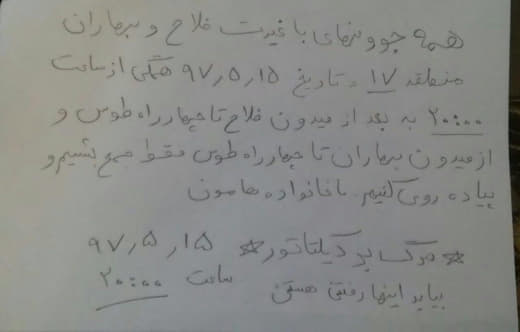 همه جوونهای با غیرت فلاح و بهاران
منطقه ۱۷ . تاریخ ۹۷٫۵٫۱۵ همگی از ساعت
۲۰:۰۰ به بعد از میدون فلاح تا چهار راه طوس و
از میدون بهاران تا چهار راه طوس فقط جمع بشیم و
پیاده روی کنیم. با خانواده هامون
* مرگ بر دیکتاتور * ۹۷٫۵٫۱۵
ساعت ۲۰:۰۰
بیاید اینها رفتنی هستن